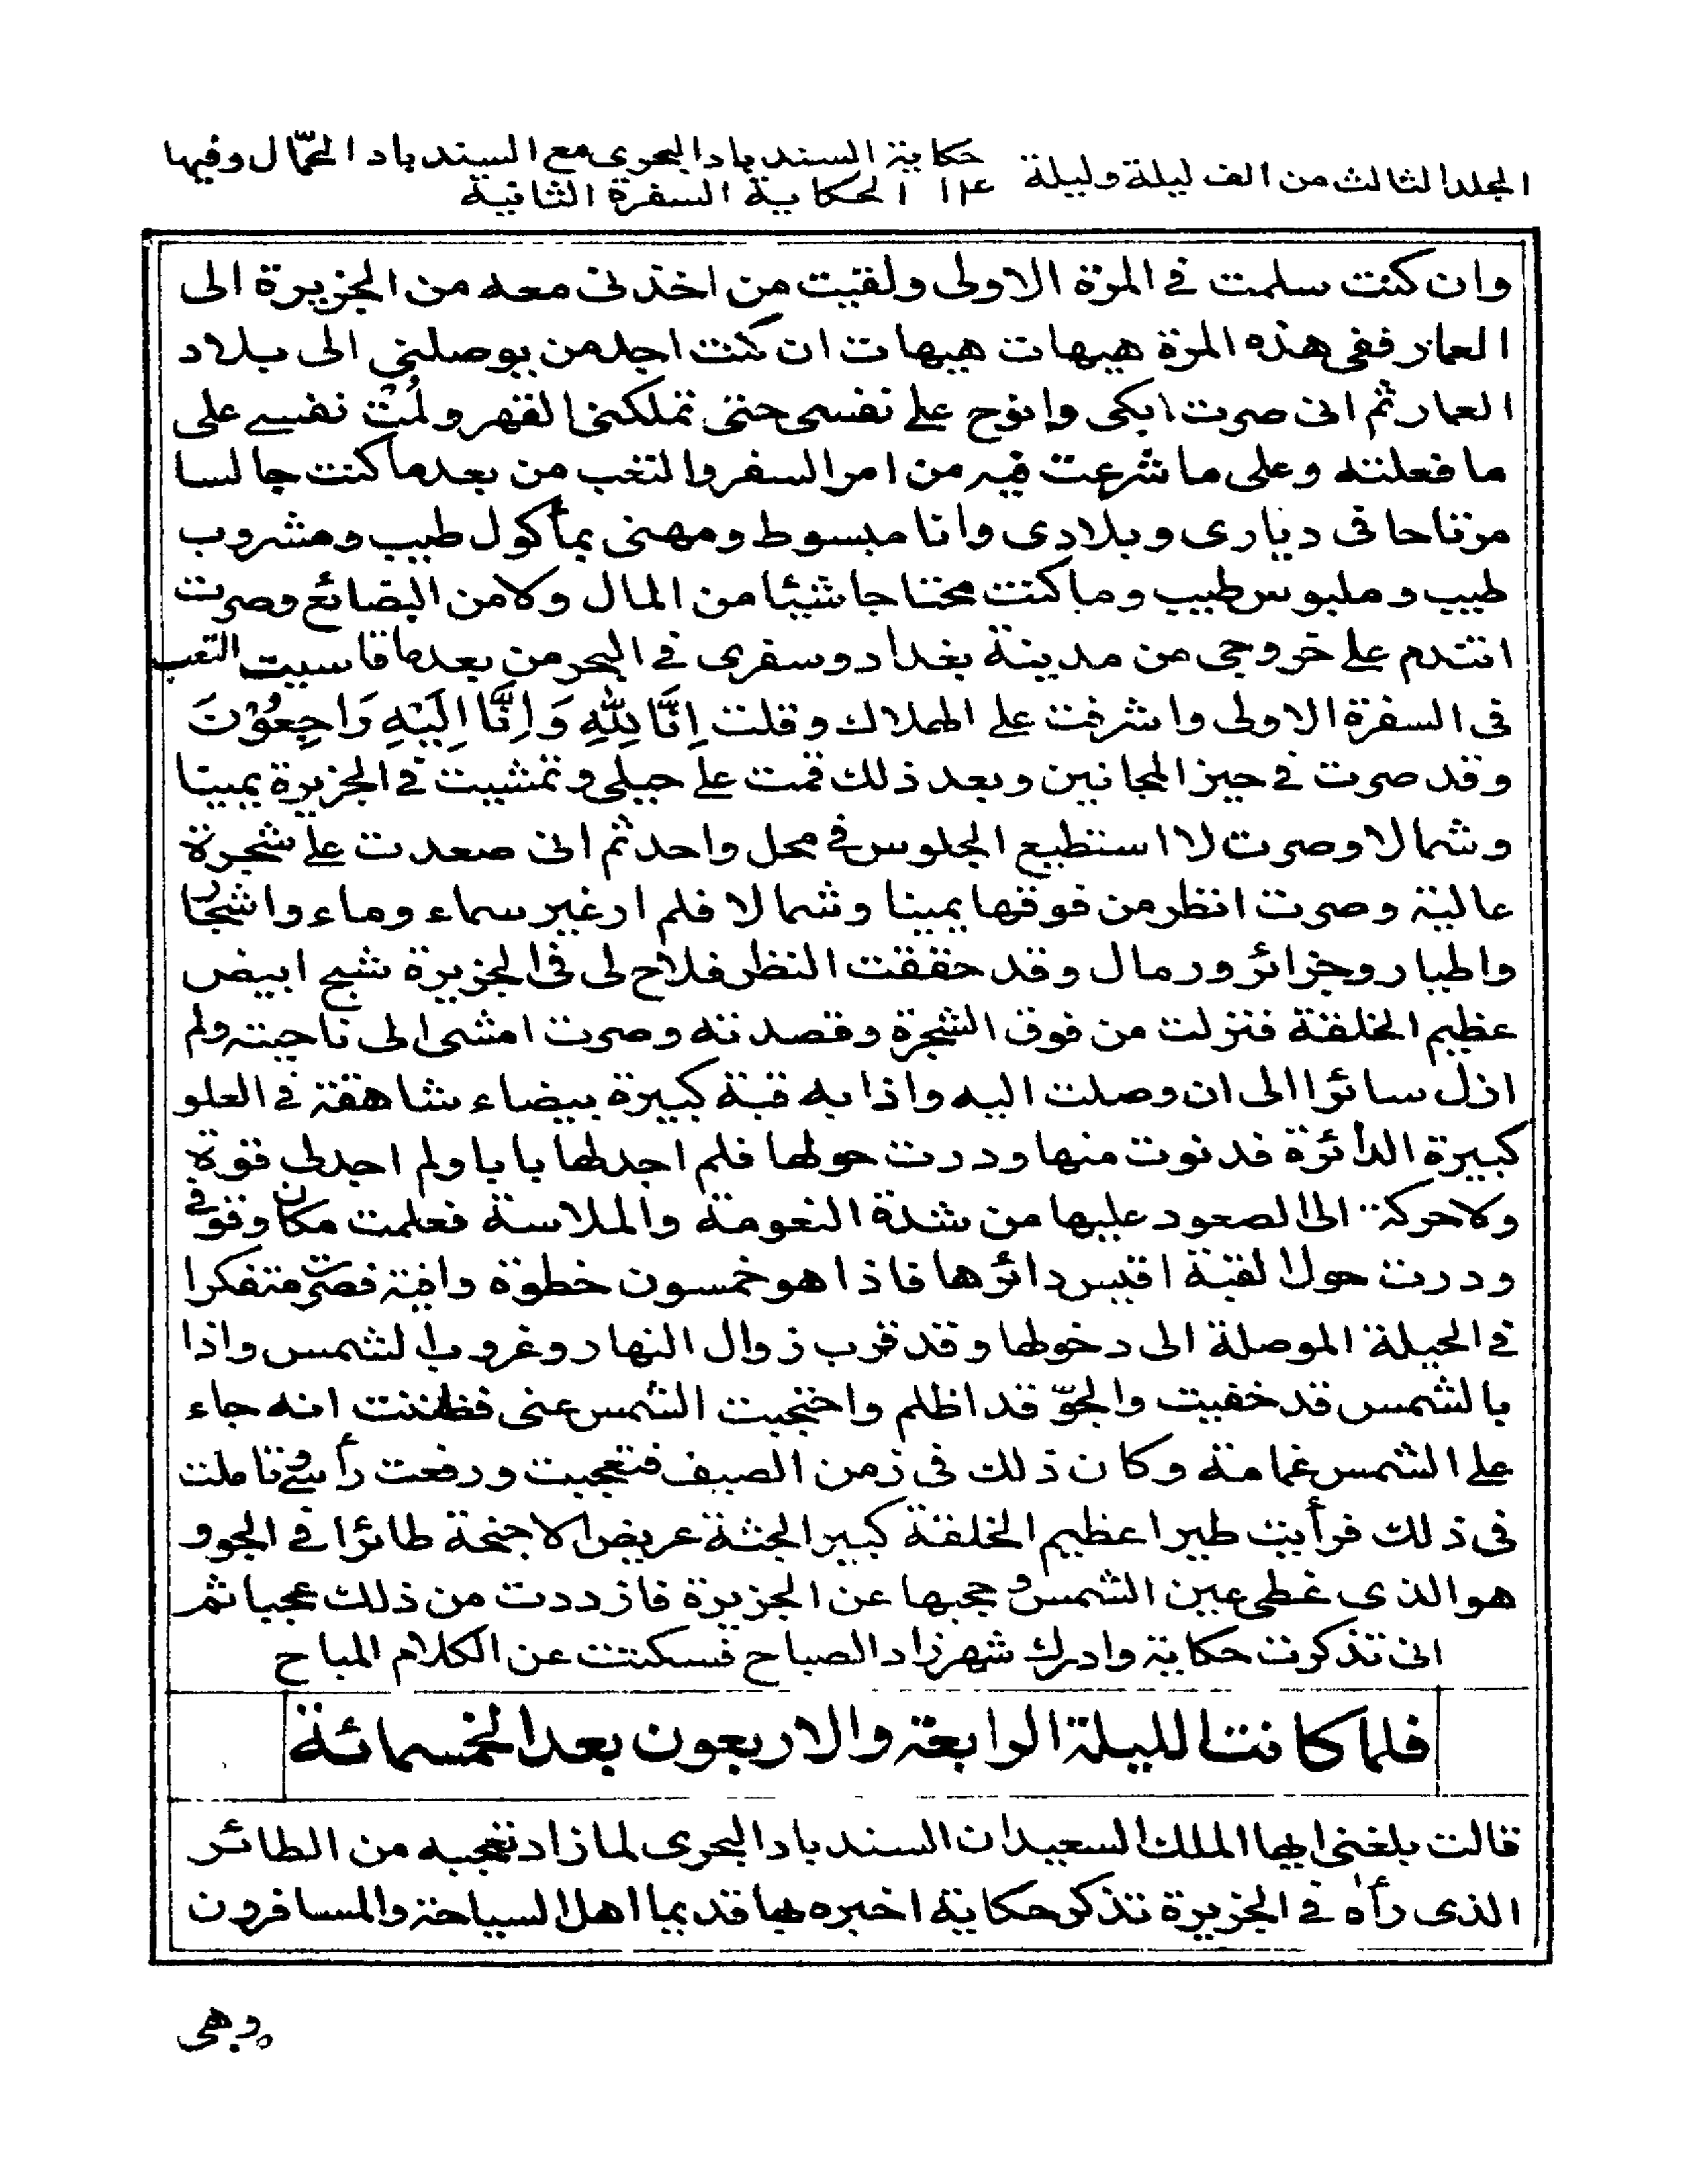 المجلد الثالث من الف ليلة وليلة ١٣٤ حكاية السندباد البحري مع السندباد الحمّال وفيها
الحكاية السفرة الثانية
وان كنت سلمت في المرّة الاولى ولقيت من اخذنى معه من الجزيرة الى
العمار ففى هذه المرة هيهات هيهات ان كنت اجد من يوصلنى الى بلاد
العمار ثم انى صرت ابكى وانوح على نفسى حتى تملكنى القهر ولُمْت نفسى على
ما فعلته وعلى ما شرعت فيه من امر السفر والتعب من بعد ما كنت جالسا
مرتاحا فى ديارى وبلادى وانا مبسوط ومهنى بمأكول طيب ومشروب
طيب وملبوس طيب وما كنت محتاجا شيئا من المال ولا من البضائع وصرت
اتندم على خروجى من مدينة بغداد وسفرى فى البحر من بعد ما قاسيت التعب
فى السفرة الاولى واشرفت على الهلاك وقلت اِنَّا لِلّٰهِ وَاِنَّا اِلَيْهِ رَاجِعُوْنَ
وقد صرت فى حيز المجانين وبعد ذلك قمت على حيلى وتمشيت فى الجزيرة يمينا
وشمالا وصرت لا استطيع الجلوس فى محل واحد ثم انى صعدت على شجرة
عالية وصرت انظر من فوقها يمينا وشمالا فلم ار غير سماء وماء واشجار
واطيار وجزائر ورمال وقد حققت النظر فلاح لى فى الجزيرة شبح ابيض
عظيم الخلقة فنزلت من فوق الشجرة وقصدته وصرت امشى الى ناحيته ولم
ازل سائرا الى ان وصلت اليه واذا به قبة كبيرة بيضاء شاهقة فى العلو
كبيرة الدائرة فدنوت منها ودرت حولها فلم اجد لها بابا ولم اجد لى قوة
ولا حركة الى الصعود عليها من شدة النعومة والملاسة فعلمت مكان وقوفى
ودرت حول القبة اقيس دائرها فاذا هو خمسون خطوة وافية فصرت متفكرا
فى الحيلة الموصلة الى دخولها وقد قرب زوال النهار وغروب الشمس واذا
بالشمس قد خفيت والجوّ قد اظلم واحتجبت الشمس عنى فظننت انه جاء
على الشمس غمامة وكان ذلك فى زمن الصيف فتعجبت ورفعت رأسى وتاملت
فى ذلك فرأيت طيرا عظيم الخلقة كبير الجثة عريض الاجنحة طائرا فى الجو و
هو الذى غطى عين الشمس وحجبها عن الجزيرة فازددت من ذلك عجبا ثم
انى تذكرت حكاية وادرك شهرزاد الصباح فسكتت عن الكلام المباح
فلما كانت الليلة الرابعة والاربعون بعد الخمسمائة
قالت بلغنى ايها الملك السعيد ان السندباد البحرى لما زاد تعجبه من الطائر
الذى رأه فى الجزيرة تذكر حكاية اخبره بها قديما اهل السياحة والمسافرون
وهى